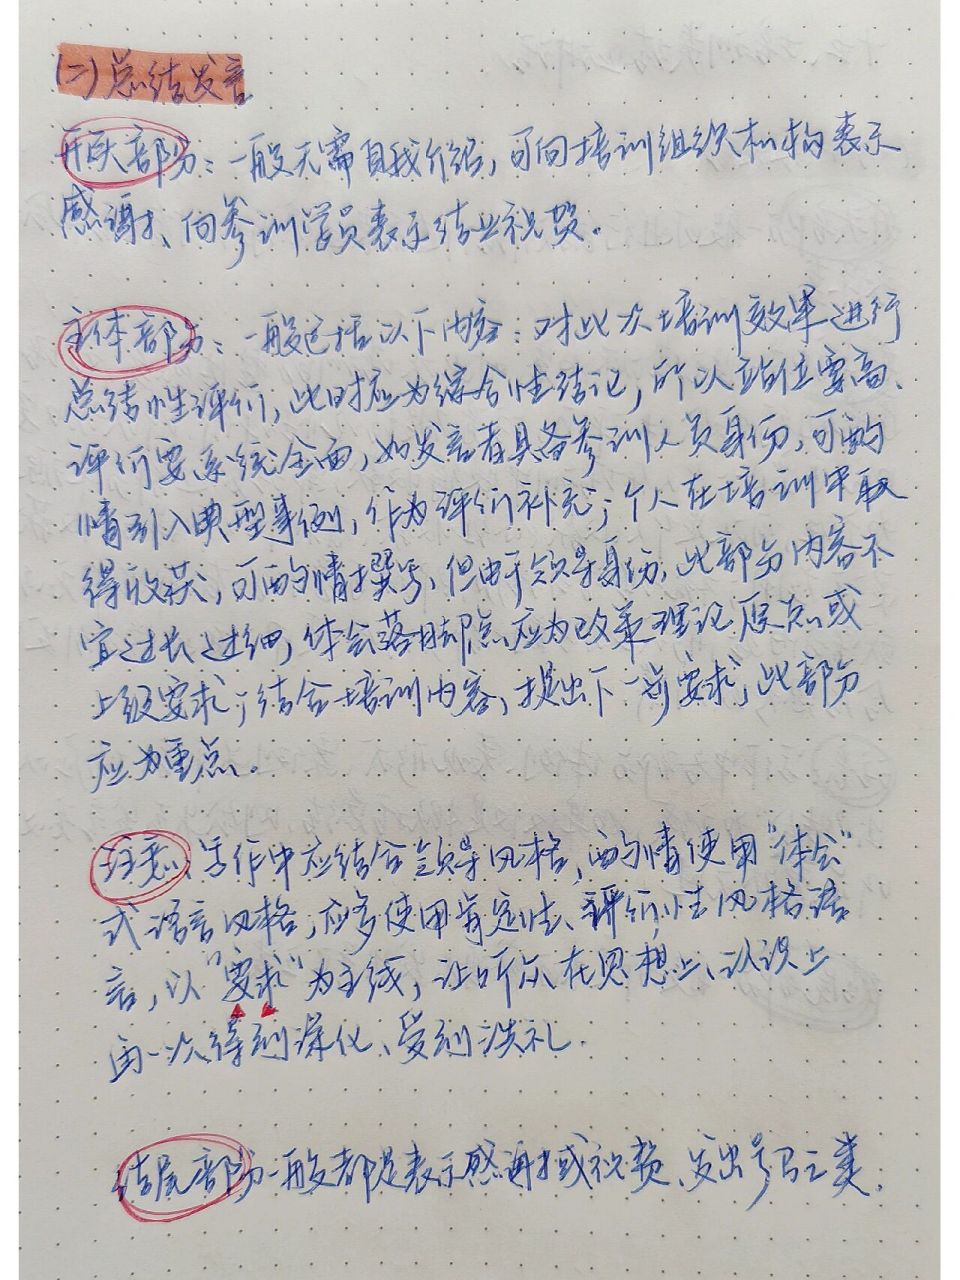 (二)总结发言
开头部分：一般无需自我介绍，可向培训组织机构表示
感谢、向参训学员表示结业祝贺。
主体部分：一般包括以下内容：对此次培训效果进行
总结性评价，此时应为综合性结论，所以站位要高、
评价要系统全面，如发言者具备参训人员身份，可酌
情引入典型事例，作为评价补充；个人在培训中取
得收获，可酌情撰写，但由于领导身份，此部分内容不
宜过长过细，体会落脚点应为政策理论原点或
上级要求；结合培训内容，提出下一步要求，此部分
应为重点。
注意、写作中应结合领导风格，酌情使用“体会”
式语言风格，应多使用肯定性、评价性风格语
言，以“要求”为主线，让听众在思想上、认识上
再一次得到深化、受到洗礼.
结尾部分一般都是表示感谢或祝贺、发出号召之类.